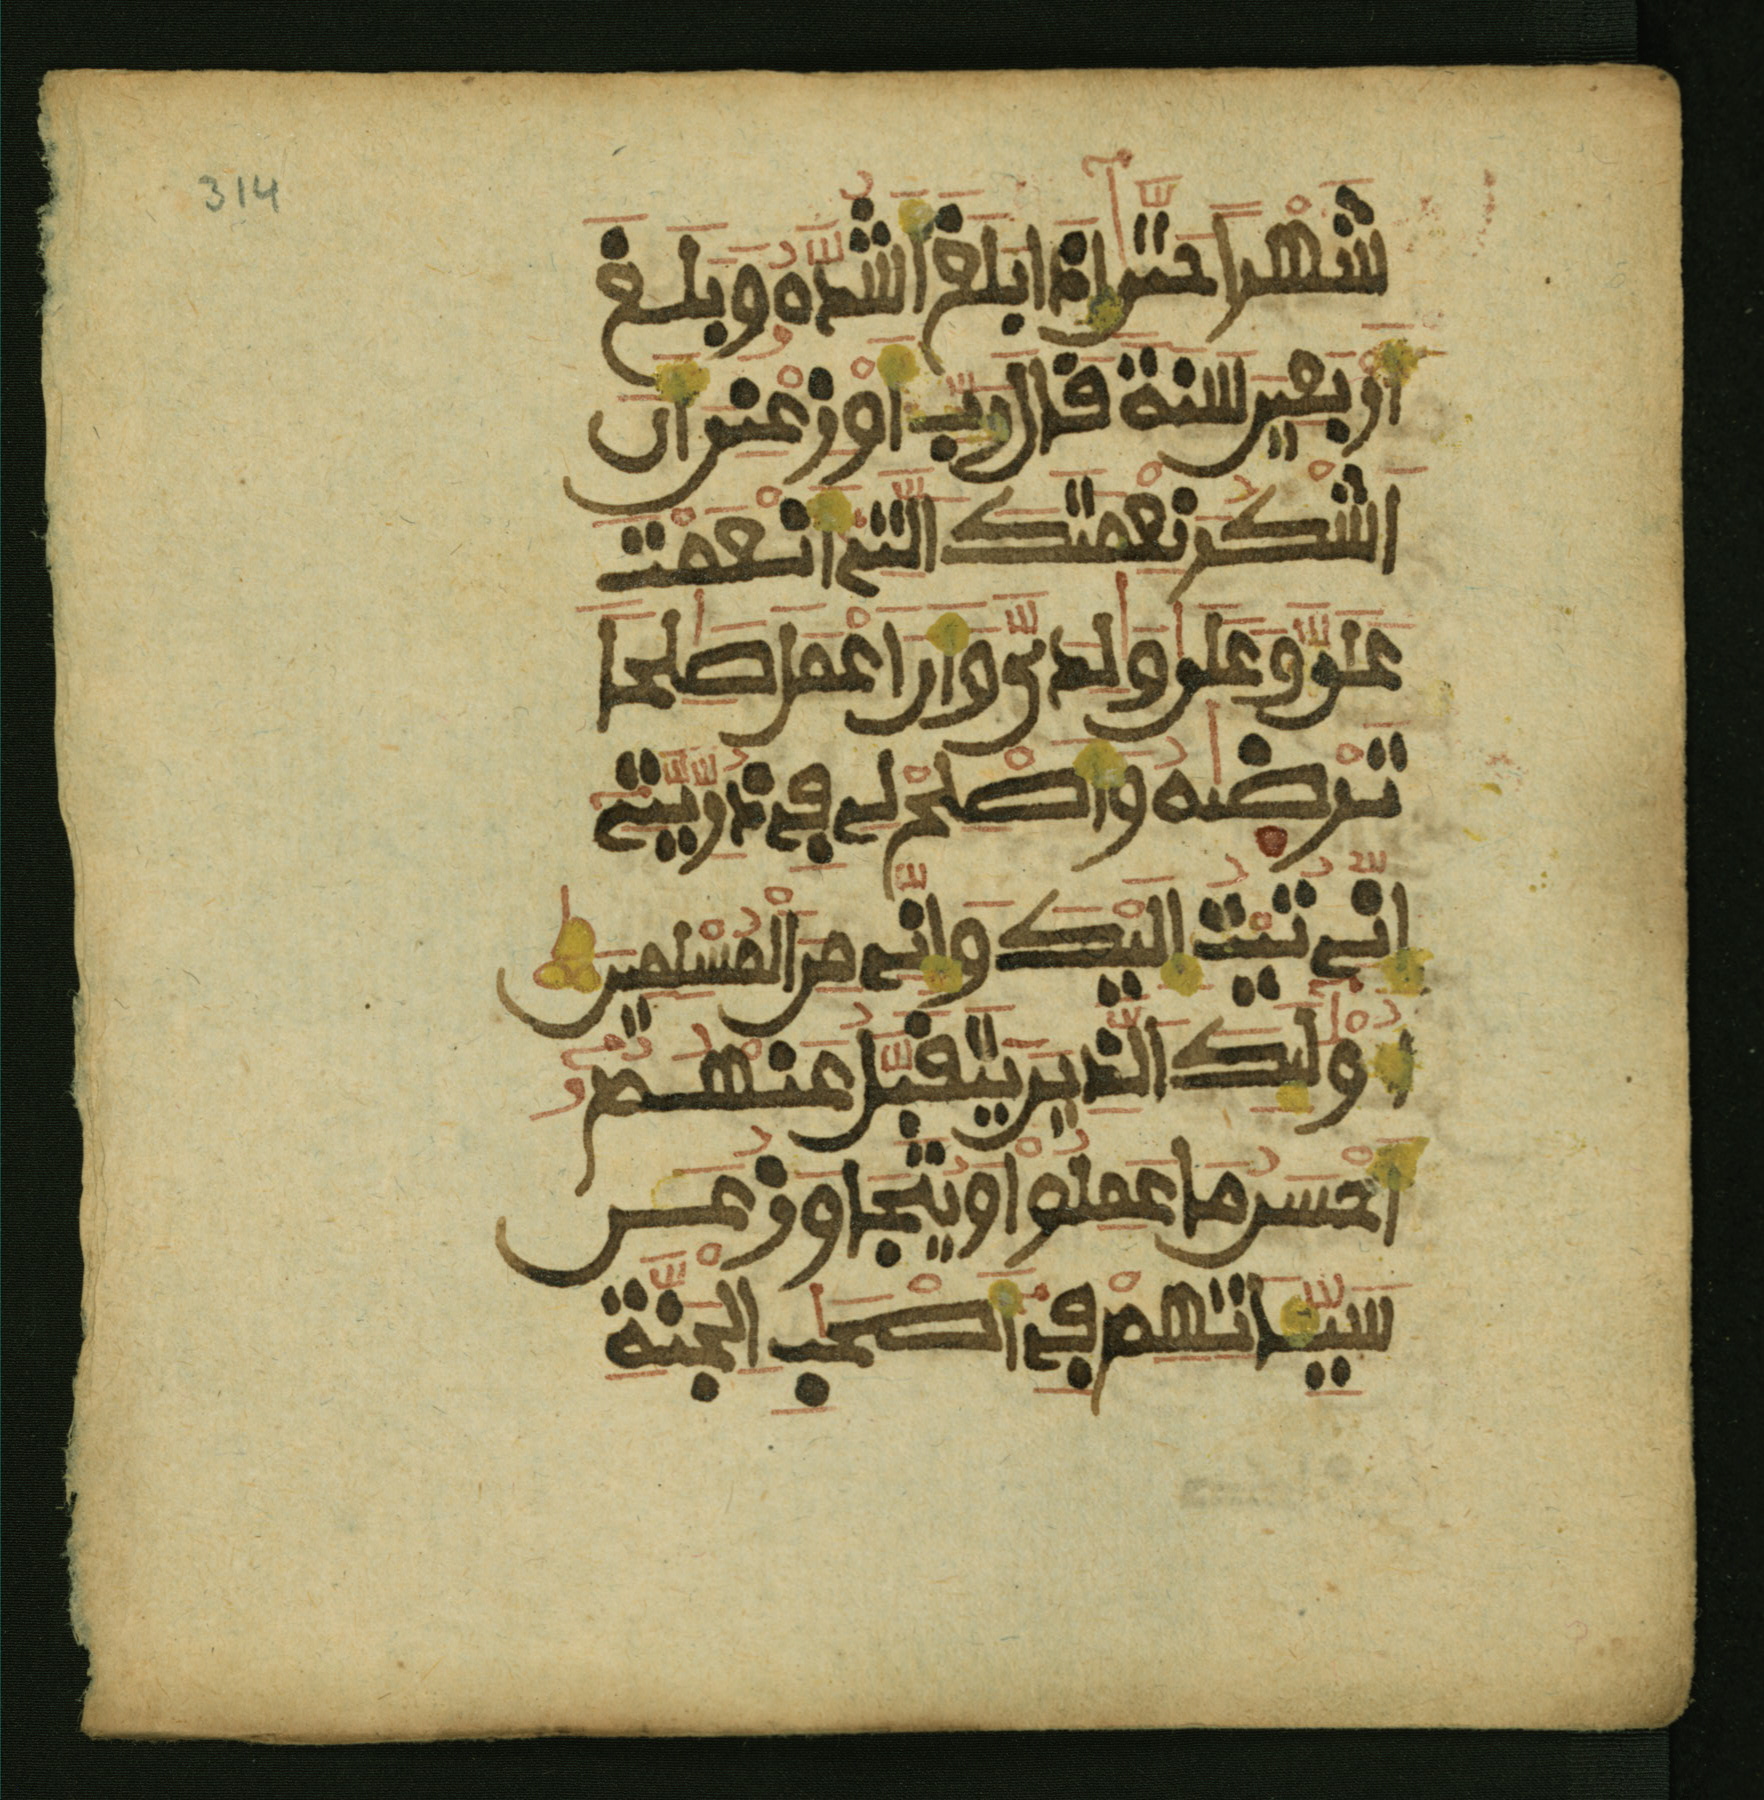 314
شَهْرًا حَتَّىٰ إِذَا بَلَغَ أَشُدَّهُ وَبَلَغَ
أَرْبَعِينَ سَنَةً قَالَ رَبِّ أَوْزِعْنِي أَنَ
اَشْكُرَ نِعْمَتَكَ الَّتِي أَنْعَمْتَ
عَلَيَّ وَعَلَىٰ وَٰلِدَيَّ وَأَنَ اَعْمَلَ صَٰلِحًا
تَرْضَىٰهُ وَأَصْلِحْ لِي فِي ذُرِّيَّتِي
إِنِّي تُبْتُ إِلَيْكَ وَإِنِّي مِنَ الْمُسْلِمِينَ
أُوْلَٰئِكَ الَّذِينَ يُتَقَبَّلُ عَنْهُمُ
أَحْسَنُ مَا عَمِلُواْ وَيُتَجَاوَزُ عَن
سَيِّـَٔاتِهِمْ فِي أَصْحَٰبِ الْجَنَّةِ